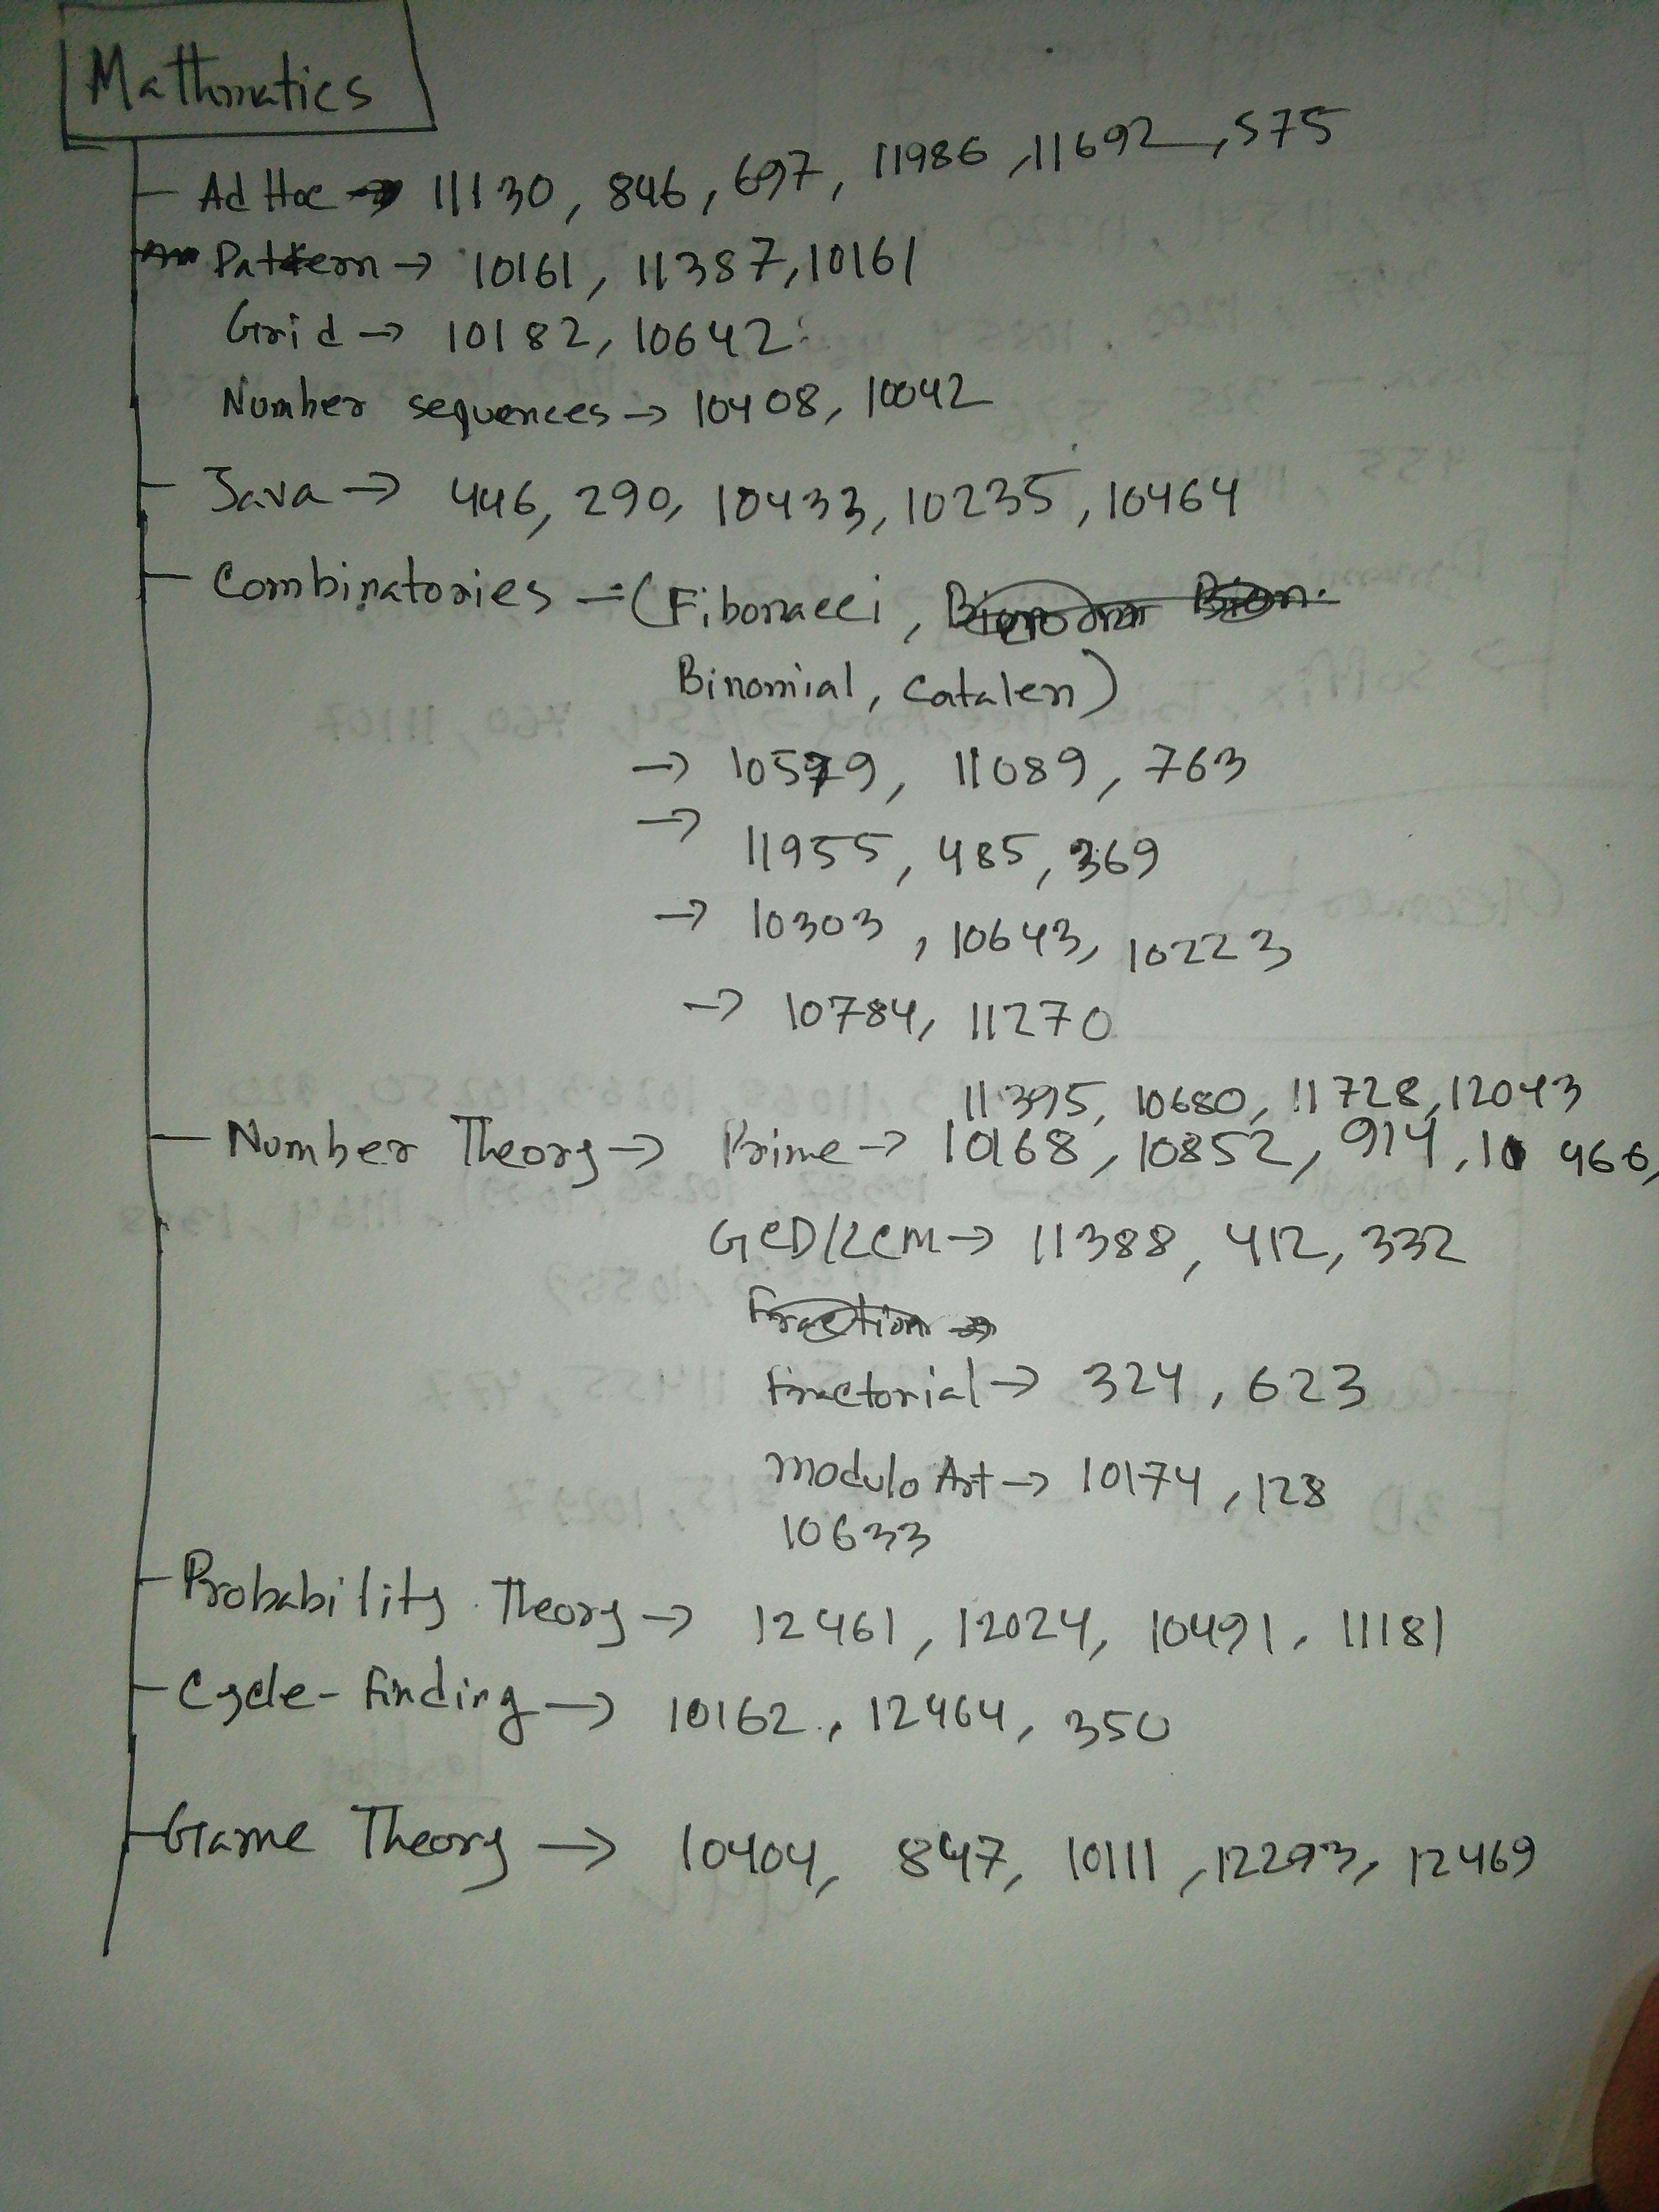 Mathmatics
Ad Hoc → 11130, 846, 697, 11986, 11692, 575
Pattern → 10161, 11387, 10161
Grid → 10182, 10642
Number sequences → 10408, 10042
Java → 446, 290, 10433, 10235, 10464
Combinatories → (Fibonacci,
Binomial, Catalen)
→ 10579, 11089, 763
→ 11955, 485, 369
→ 10303, 10643, 10223
→ 10784, 11270
11395, 10680, 11728, 12043
Number Theory → Prime → 10168, 10852, 914, 10466,
GCD/LCM → 11388, 412, 332
Fraction →
Factorial → 324, 623
Modulo Art → 10174, 128
10633
Probability Theory → 12461, 12024, 10491, 11181
Cycle-finding → 10162, 12464, 350
Game Theory → 10404, 847, 10111, 12293, 12469